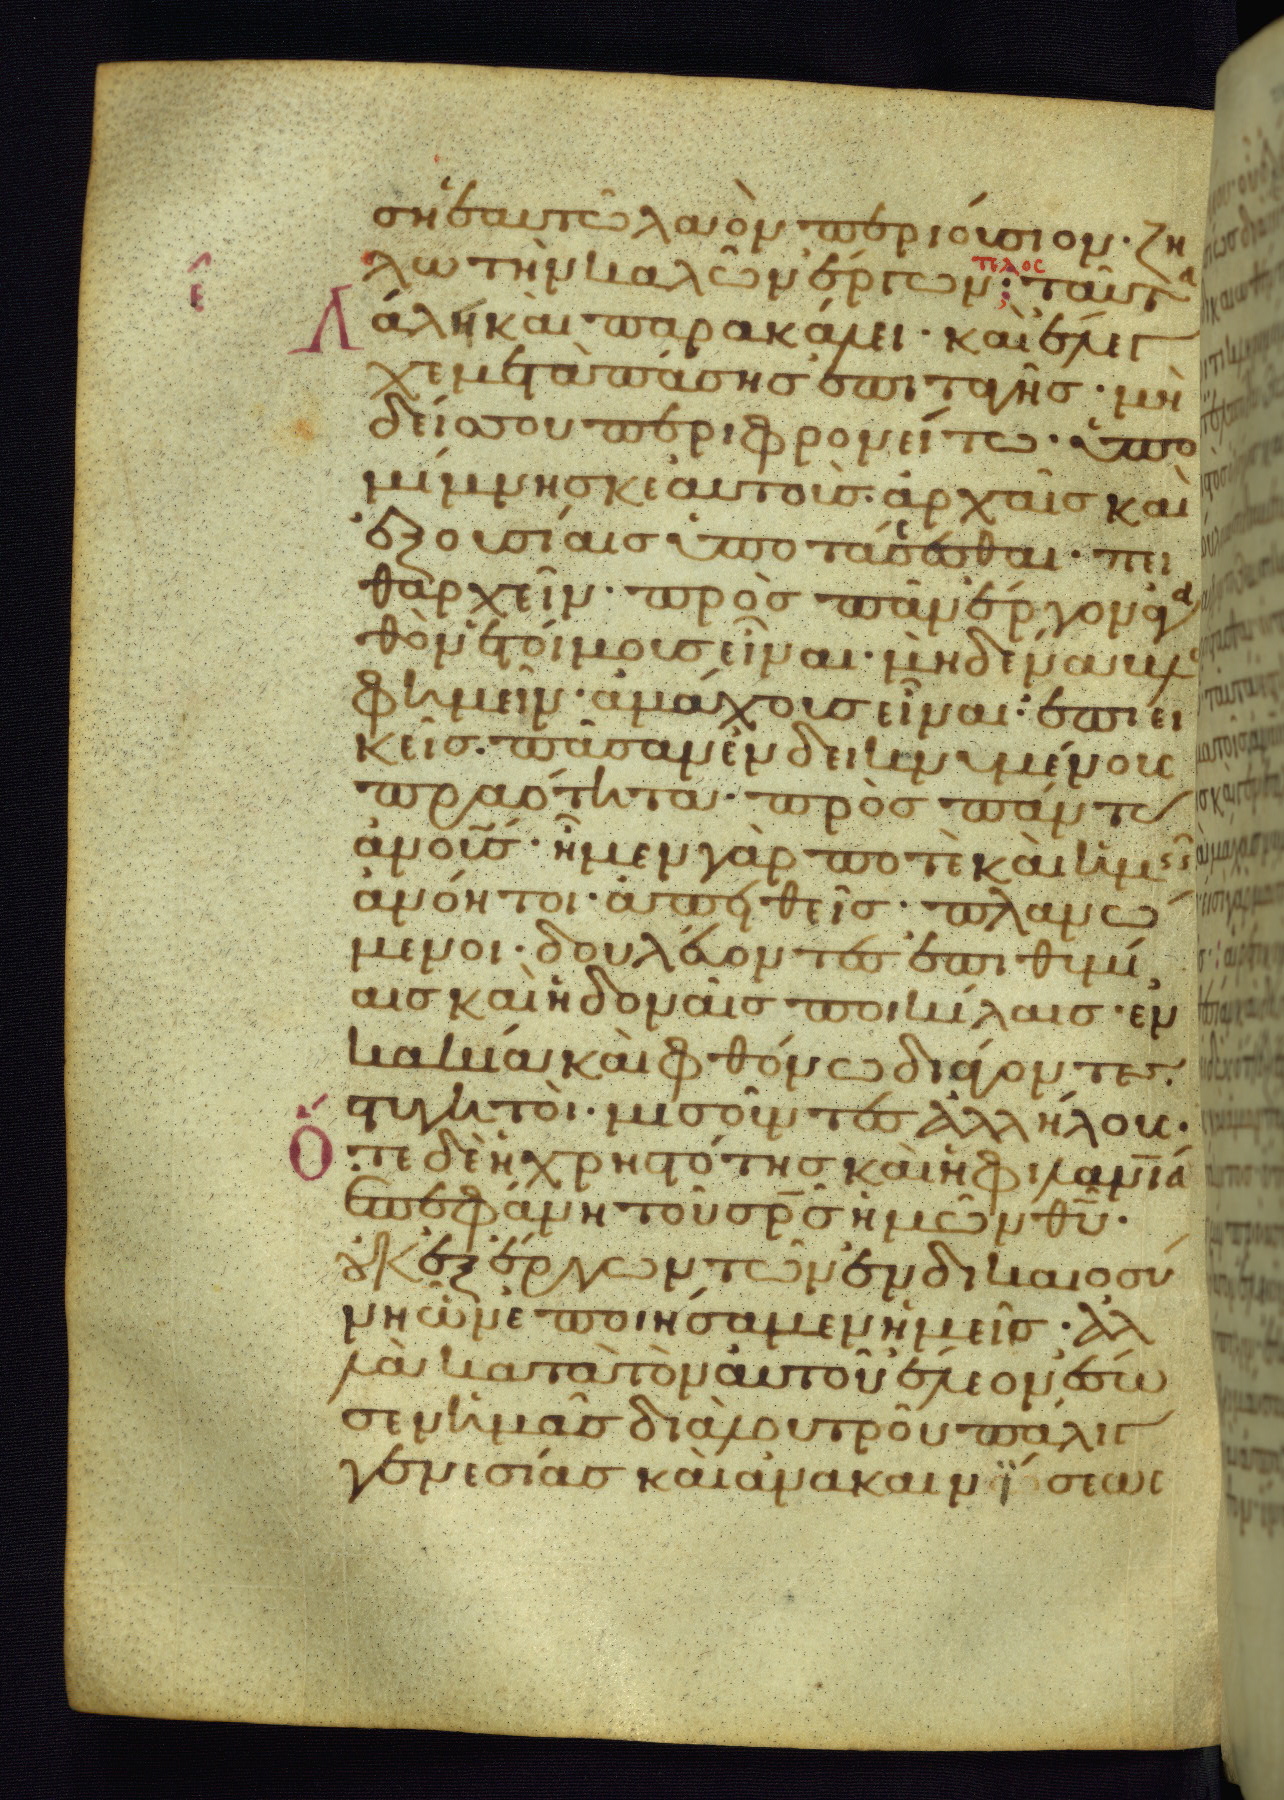 ση ἑαυτῶ λαὸν περιούσιον· ζη
τέλος
λωτὴν καλῶν ἔργων: ταῦτα
ε̂
Λάλει καὶ παρακάλει· καὶ ἔλεγ
χε μετὰ πάσης ἐπιταγῆς· μη
δείς σου περιφρονείτω· ὑπο
μίμνησκε αὐτοὺς ἀρχαῖς καὶ
ἐξουσίαις ὑποτάσσεσθαι· πει
θαρχεῖν· πρὸς πᾶν ἔργον ἀγα
θὸν ἑτοίμους εἶναι· μηδένα βλα
σφημεῖν· ἀμάχους εἶναι· ἐπιει
κεῖς· πᾶσαν ἐνδεικνυμένους
πραότητα· πρὸς πάντας
ἀνο̅υ̅ς̅· ἦμεν γὰρ ποτὲ καὶ ἡμεῖς
ἀνόητοι· ἀπειθεῖς· πλανώ
μενοι· δουλεύοντες ἐπιθυμί
αις καὶ ἡδοναῖς ποικίλαις· ἐν
κακία καὶ φθόνω διάγοντες·
στυγητοὶ· μισοῦντες ἀλλήλους·
Ὅτε δὲ ἡ χρηστότης καὶ ἡ φιλαν̅ι̅α
ἐπεφάνη τοῦ σρ̅ς ἡμῶν θ̅υ̅·
οὐκ ἐξ ἔργων τῶν ἐν δικαιοσύ
νη ὧν ἐποιήσαμεν ἡμεῖς· ἀλ
λὰ κατὰ τὸν αὐτοῦ ἔλεον ἔσω
σεν ἡμᾶς διὰ λουτροῦ παλιγ
γενεσίας καὶ ἀνακαινϊσεως